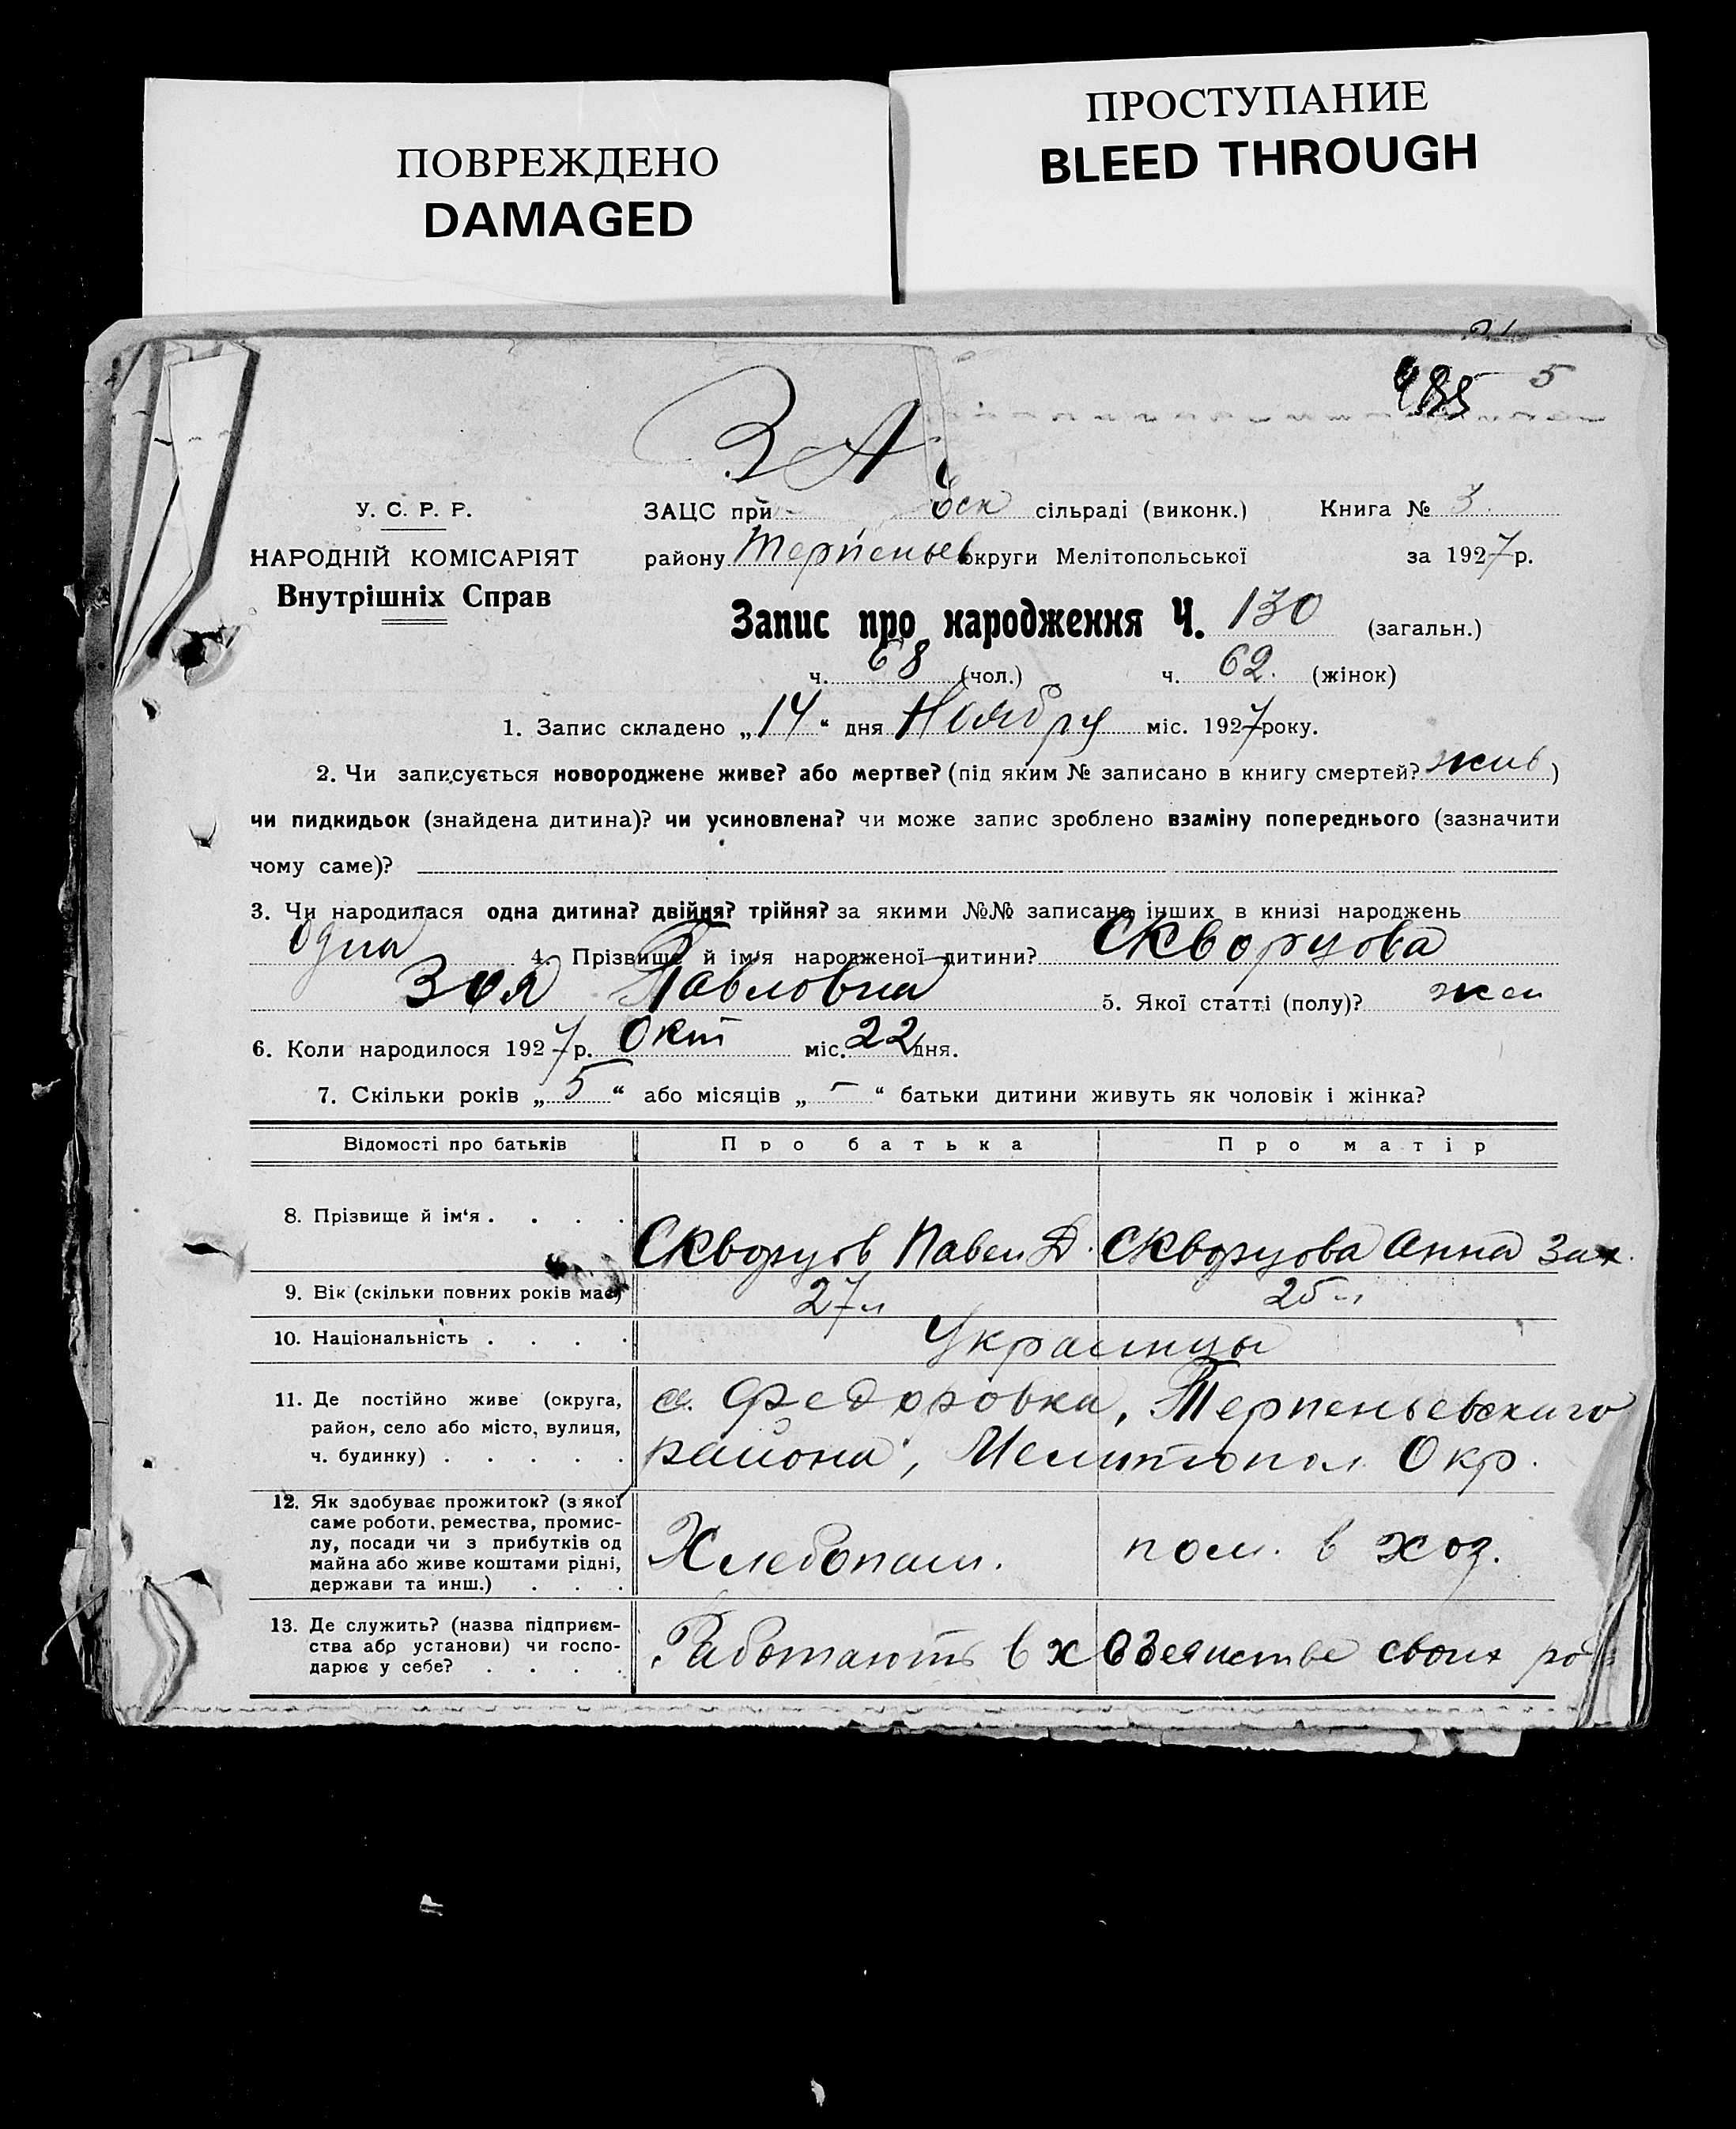 ПОВРЕЖДЕНО
DAMAGED
ПРОСТУПАНИЕ
BLEED THROUGH
5
З А
У. С. Р. Р.
НАРОДНІЙ КОМІСАРІЯТ
Внутрішніх Справ
ЗАЦС при сільраді (виконк.) Книга № 3.
району Терпеньев округи Мелітопольської за 1927 р.
Запис про народження Ч. 130 (загальн.)
ч. 68 (чол.) ч. 62. (жінок)
1. Запис складено „14“ дня Ноябру міс. 1927 року.
2. Чи записується новороджене живе? або мертве? (під яким № записано в книгу смертей? жив)
чи пидкидьок (знайдена дитина)? чи усиновлена? чи може запис зроблено взаміну попереднього (зазначити
чому саме)?
3. Чи народилася одна дитина? двійня? трійня? за якими №№ записано інших в книзі народжень
одна 4. Прізвище й ім'я народженої дитини? Скворцова
Зоя Павловна 5. Якої статті (полу)? жен
6. Коли народилося 1927 р. Окт міс. 22 дня.
7. Скільки років „5“ або місяців „-“ батьки дитини живуть як чоловік і жінка?
Відомості про батьків Про батька Про матір
8. Прізвище й ім'я . . . . Скворцов Павел Д. Скворцова Анна Зах.
9. Вік (скільки повних років має) 27 л 25 л
10. Національність . . . . Украинцы
11. Де постійно живе (округа,
район, село або місто, вулиця,
ч. будинку) . . . . .
с. Федоровка, Терпеньевскаго
района, Мелитопол. Окр.
12. Як здобуває прожиток? (з якої
саме роботи, ремества, промис-
лу, посади чи з прибутків од
майна або живе коштами рідні,
держави та инш.) . . .
Хлебопаш. пом. в хоз.
13. Де служить? (назва підприєм-
ства або установи) чи госпо-
дарює у себе? . . . .
Работают в хозяистве своих ро